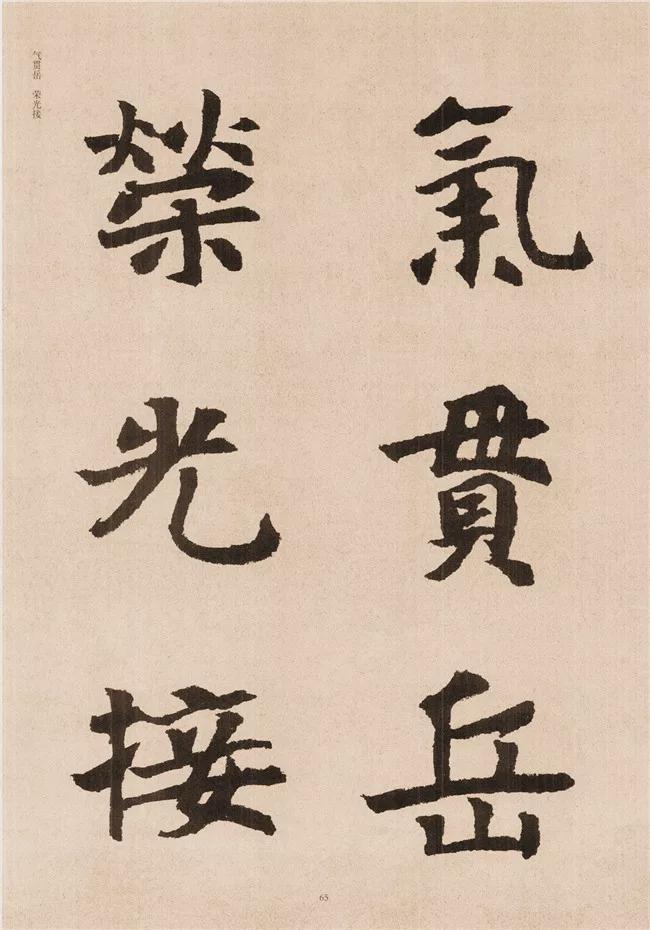 氣貫岳
榮光接
气贯岳 荣光接
65